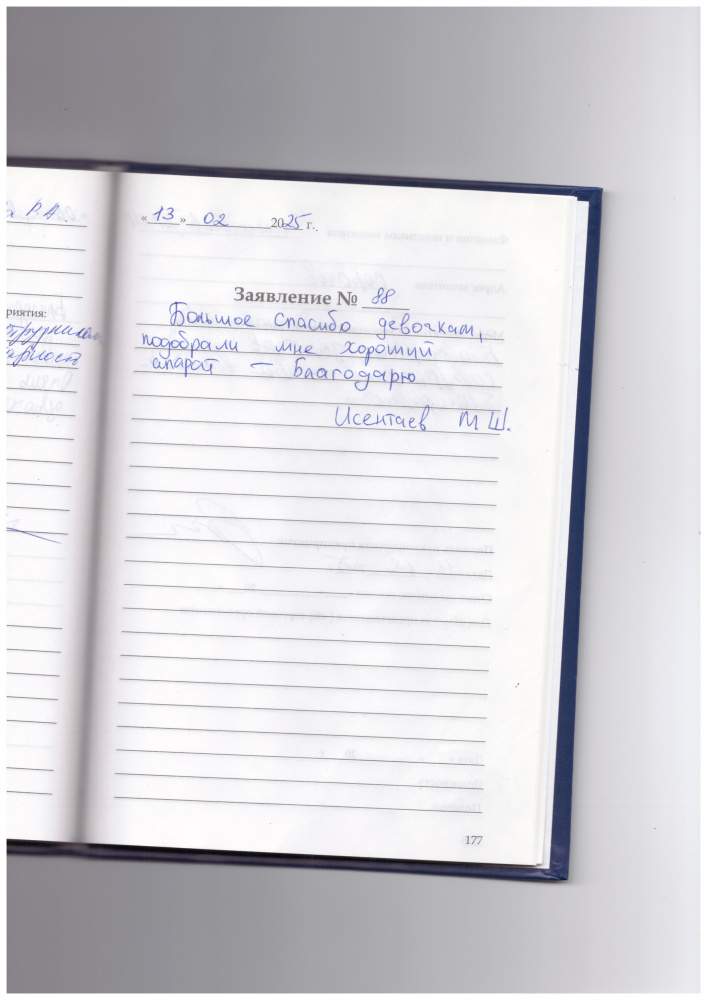 В.А.
приятия:
«13» 02 2025 г.
Заявление № 88
Большое спасибо девочкам,
подобрали мне хороший
апарат — Благодарю
Исентаев М Ш.
177